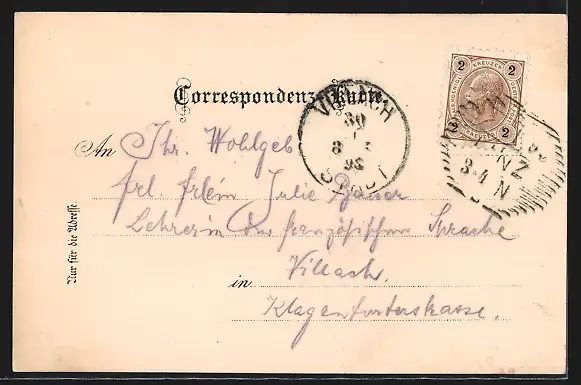 2 KREUZER 2
2 2
Correspondenz-Karte.
VILLACH
30
8
98
STADT
LINZ
3-4 N
An Ihr. Wohlgeb
frl. frlein Julie Bauer
Lehrerin der französischen Sprache
in Villach.
Klagenfurterstrasse.
Nur für die Adresse.